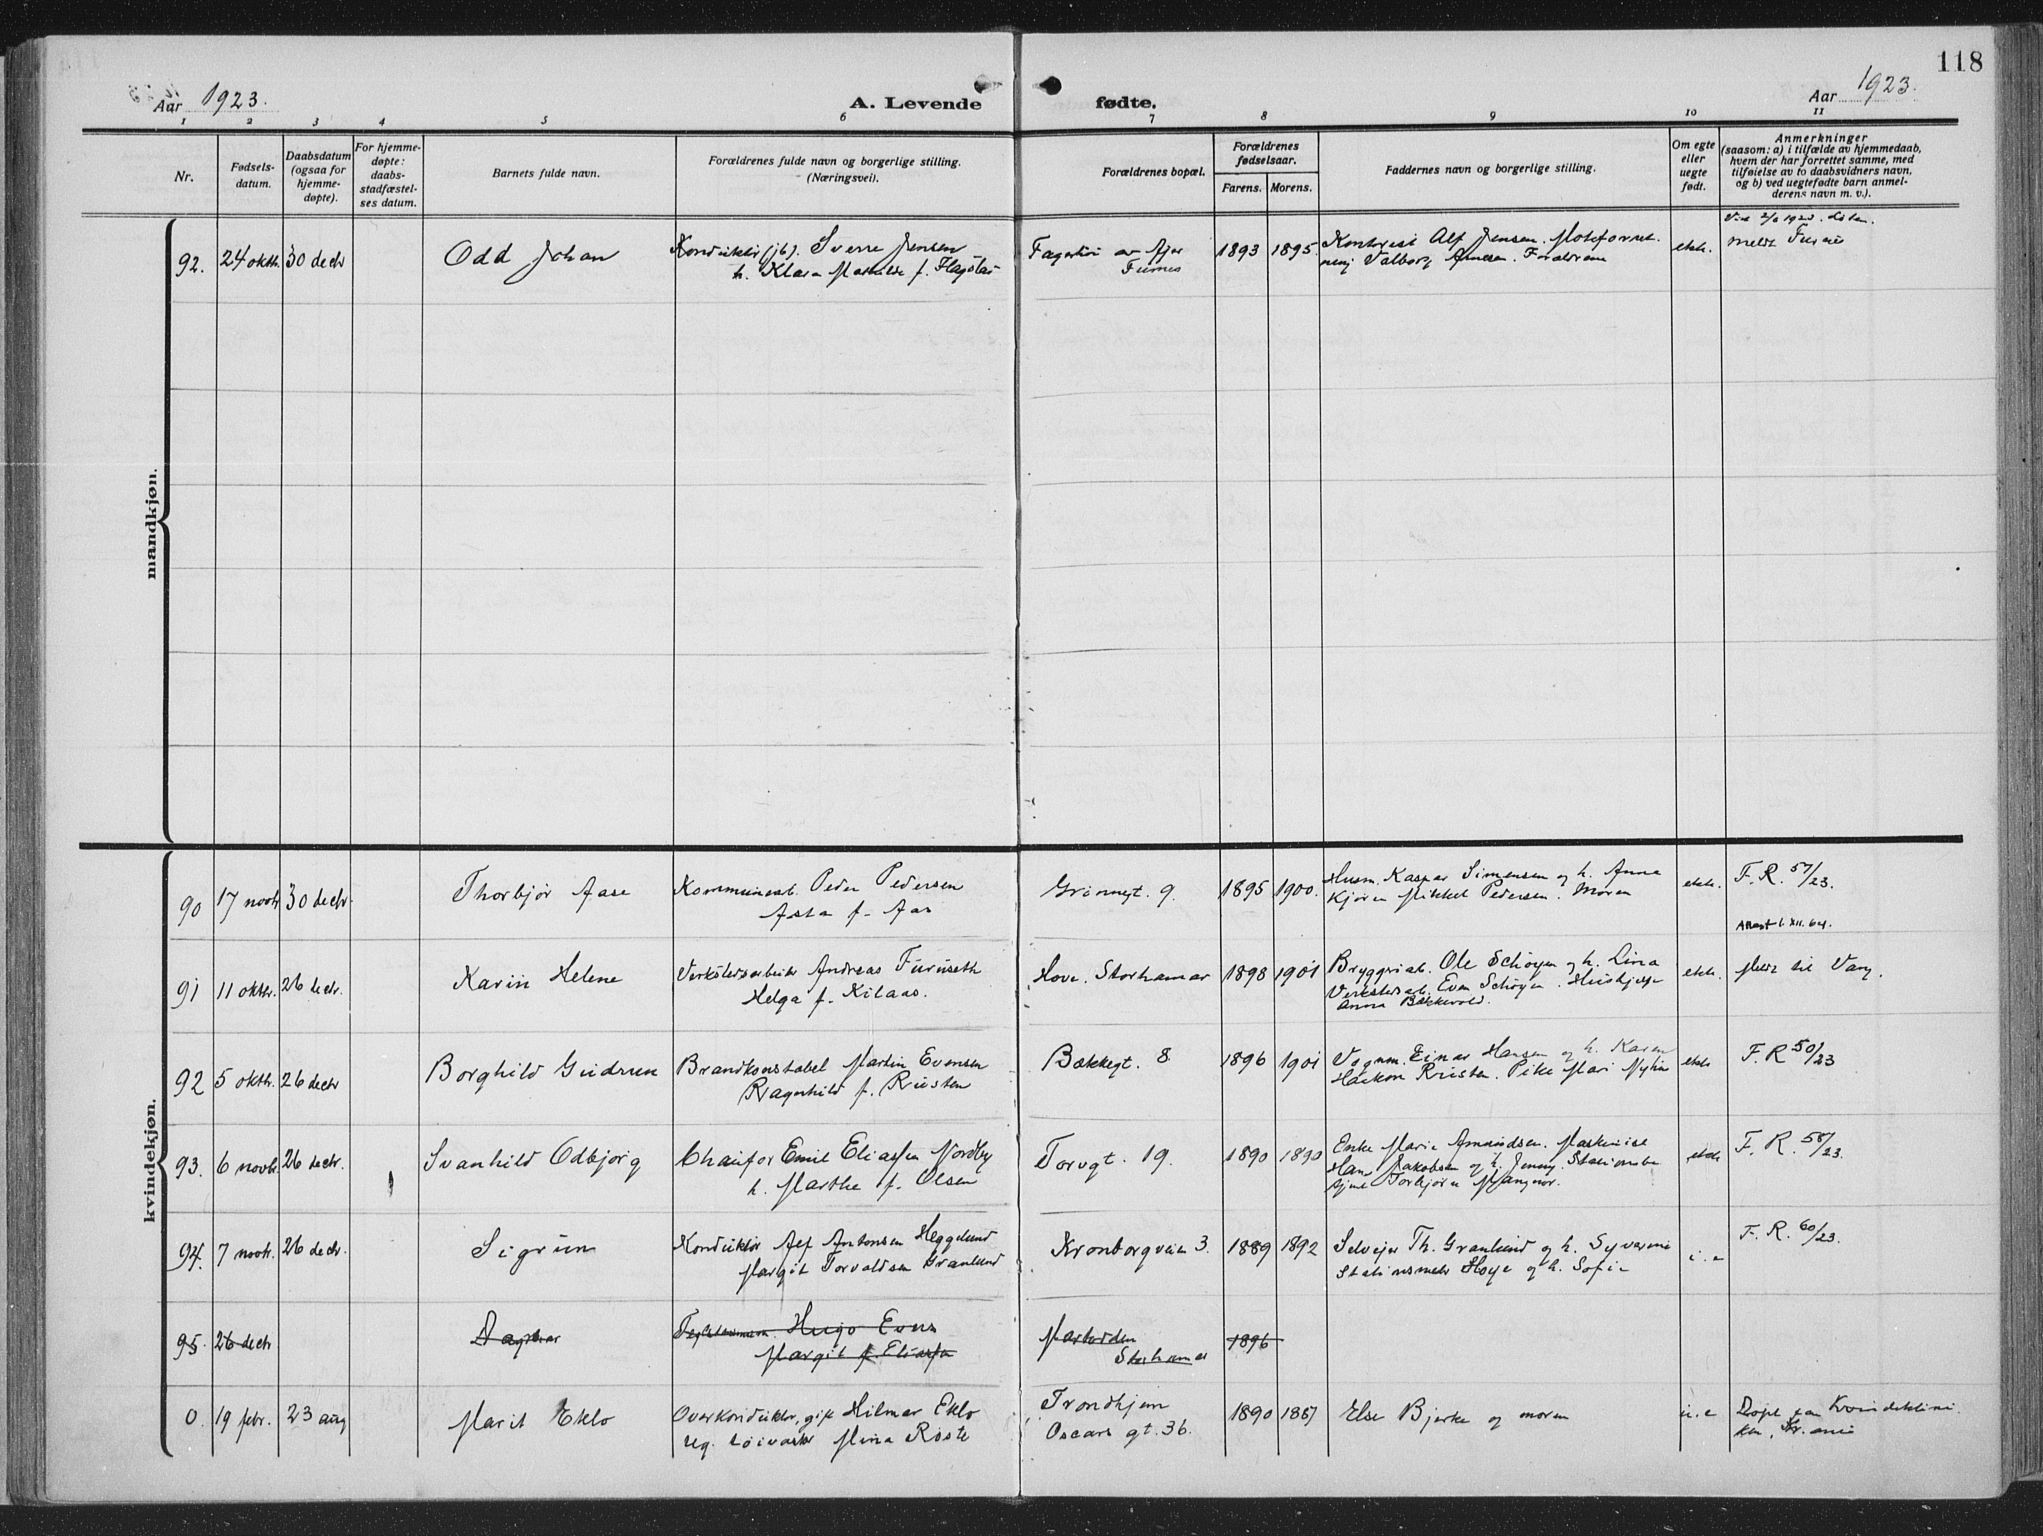 118
Aar 1923.
A. Levende fødte.
Aar 1923.
1 2 3 4 5 6 7 8 9 10 11
Nr.
Fødsels-
datum.
Daabsdatum
(ogsaa for
hjemme-
døpte).
For hjemme-
døpte:
daabs-
stadfæstel-
ses datum.
Barnets fulde navn.
Forældrenes fulde navn og borgerlige stilling.
(Næringsvei).
Forældrenes bopæl.
Forældrenes
fødselsaar.
Farens. Morens.
Faddernes navn og borgerlige stilling.
Om egte
eller
uegte
født.
Anmerkninger
(saasom: a) i tilfælde av hjemmedaab,
hvem der har forrettet samme, med
tilføielse av to daabsvidners navn,
og b) ved uegtefødte barn anmel-
derens navn m. v.).
mandkjøn.
92. 24 oktbr. 30 decbr
Odd Johan
Konduktør (jb). Sverre Jensen
h. Klara Mathilde f. Flagstad
av Ajer
Furnes
1893 1895
Kontorist Alf Jensen.
Valborg Arnesen. Forældrene
ekte.
meldt Furnes
kvindekjøn.
90 17 novbr 30 decbr.
Thorbjør Aase
Kommunearb. Peder Pedersen
Asta f. Aas
Grønnegt. 9.
1895 1900.
Husm. Kaspar Simensen og h. Anna
Kjører Mikkel Pedersen. Moren
ekte.
F. R. 57/23.
Attest 1. XII. 64.
91 11 oktbr. 26 decbr.
Karin Helene
Verkstedsarbeider Andreas Furuseth
Helga f. Kilaas.
Hove. Storhamar
1898 1901
Bryggeriarb. Ole Schøyen og h. Lina
Verkstedsarb. Even Schøyen. Husbjelp
Anna Bækkevold.
ekte.
Meldt til Vang.
92 5 oktbr. 26 decbr
Borghild Gudrun
Brandkonstabel Martin Evensen
Ragnhild f. Rusten
Bækkegt. 8
1896 1901
Vognm. Einar Hansen og h. Karen
Haakon Rusten. Pike Mari
ekte
F. R 50/23
93. 6 novbr. 26 decbr.
Svanhild Odbjørg
Chaufør Emil Eliassen Nordby
h. Marthe f. Olsen
Torvgt. 19.
1890 1890
Enke Marie Amundsen. Maskinist
Hans Jakobsen og h. Jenny. Stationsbe
tjent Torbjørn Mangnor.
ekte
F. R. 58/23.
94. 7 novbr. 26 decbr.
Sigrun
Konduktør Alf Antonsen Heggelund
Margit Torvaldsen Granlund
Kronborgveien 3.
1889 1892
Selveier Th. Granlund og h. Syverine
Stationsmester Hoye og h. Sofie
F. R. 60/23.
95. 26 decbr
Dagmar
Hugo Evens
Margit f. Eliassen
Storhamar
1896
0. 19 febr. 23 aug
Marit Eklo
Overkonduktør, gift Hilmar Eklo
Mina Roste
Trondhjem
Oscars gt. 36.
1890
Else Bjerke og moren
u. e
Døpt paa Kvindeklini
ken, Kr.ania